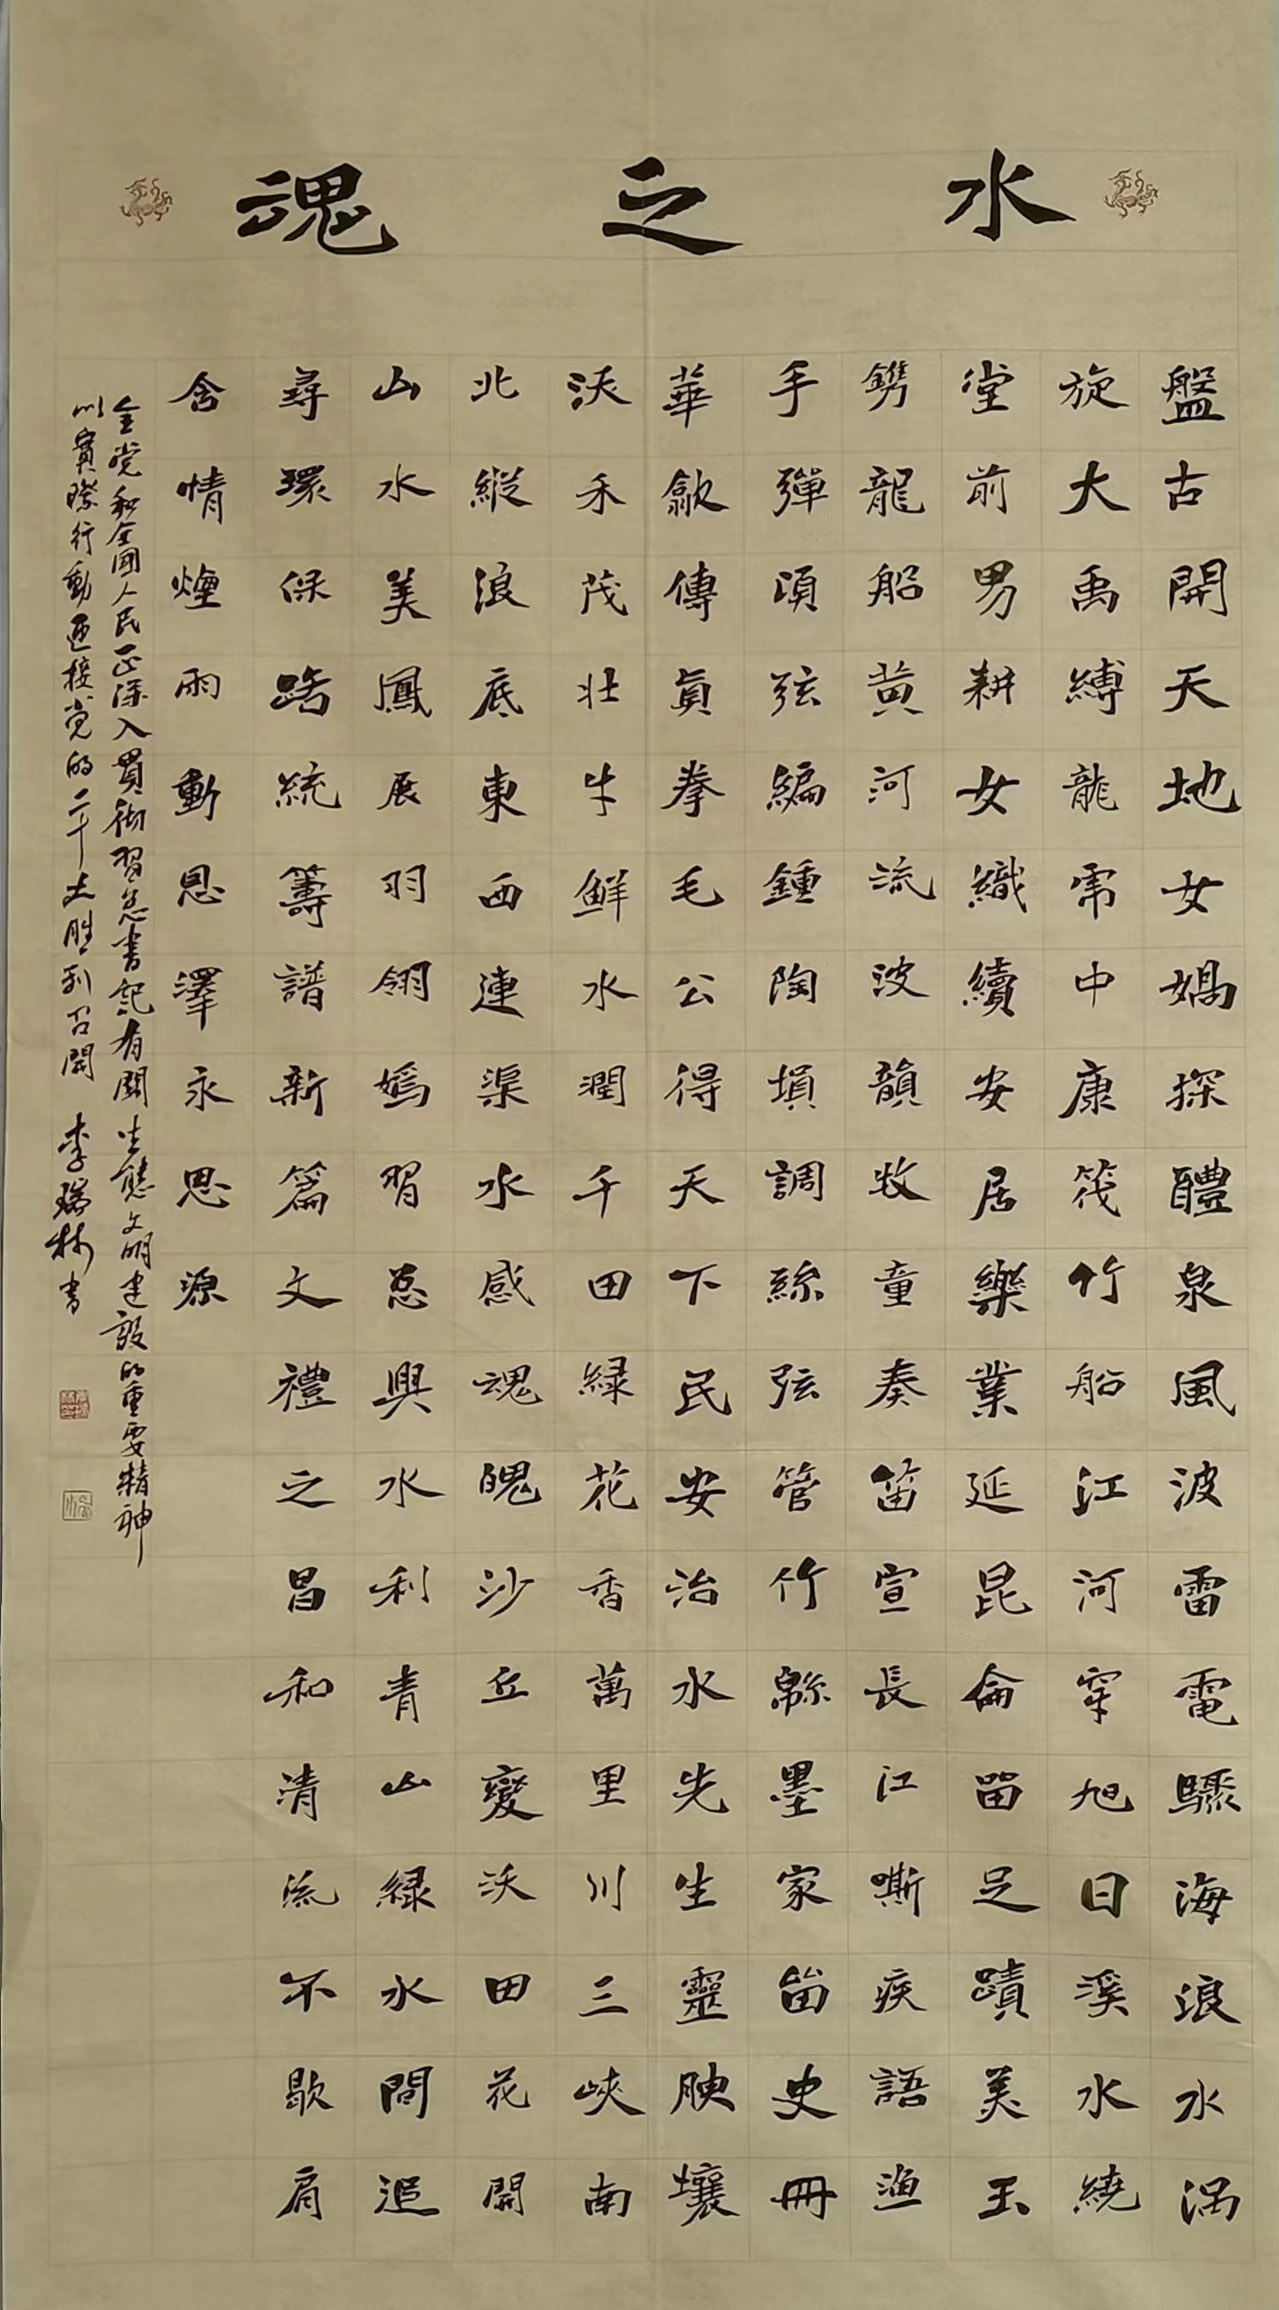 水之魂
盤古開天地女媧探醴泉風波雷電驟海浪水渦
旋大禹縛龍帝中康筏竹船江河穿旭日溪水繞
堂前男耕女織續安居樂業延昆侖留足蹟美玉
鐫龍船黄河流波韻牧童奏笛宣長江嘶疾語漁
手彈頃弦編鍾陶塤調絲弦管竹緜墨家留史冊
華歙傳真拳毛公得天下民安治水先生靈腴壤
沃禾茂壯牛鮮水潤千田緑花香萬里川三峽南
北縱浪底東西連渠水感魂魄沙丘變沃田花開
山水美鳳展羽翎嫣習总興水利青山緑水間追
尋環保路統籌譜新篇文禮之昌和清流不歇肩
含情煙雨動恩澤永思源
全党和全國人民正深入貫彻習总書記有関生態文明建設的重要精神
以實際行動迎接党的二十大胜利召開 李瑞林書